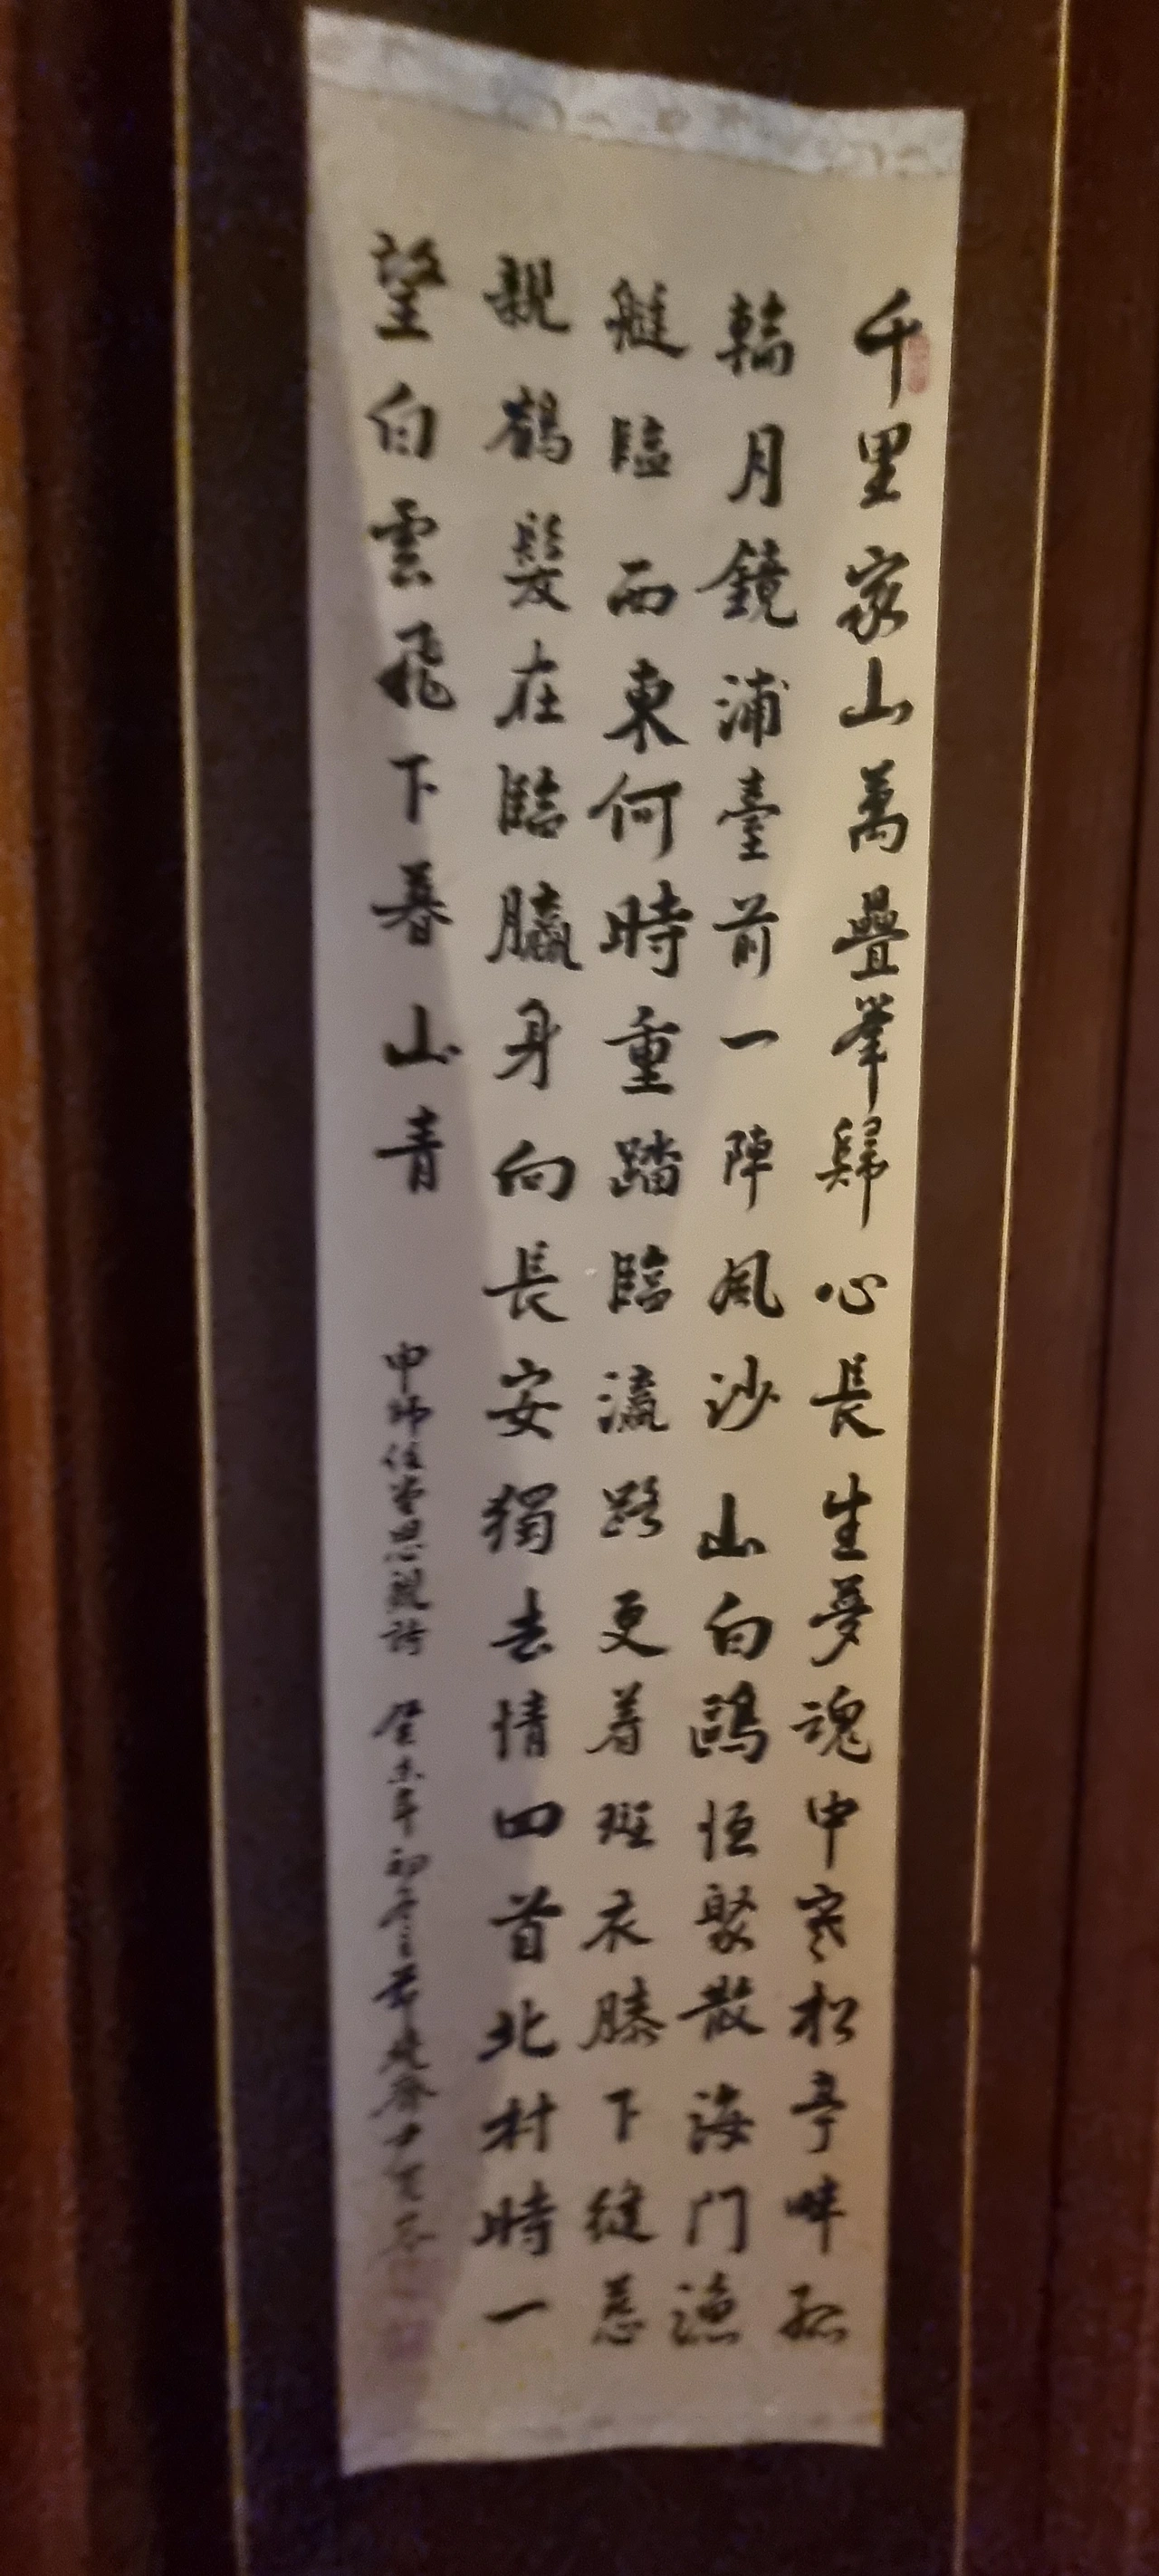 千里家山萬疊峯歸心長生夢魂中寒松亭畔孤
輪月鏡浦臺前一陣風沙山白鷗恒聚散海門漁
艇臨西東何時重踏臨瀛路更着斑衣膝下縫慈
親鶴髮在臨瀛身向長安獨去情四首北村時一
望白雲飛下暮山青
申師任堂思親詩 癸未年初